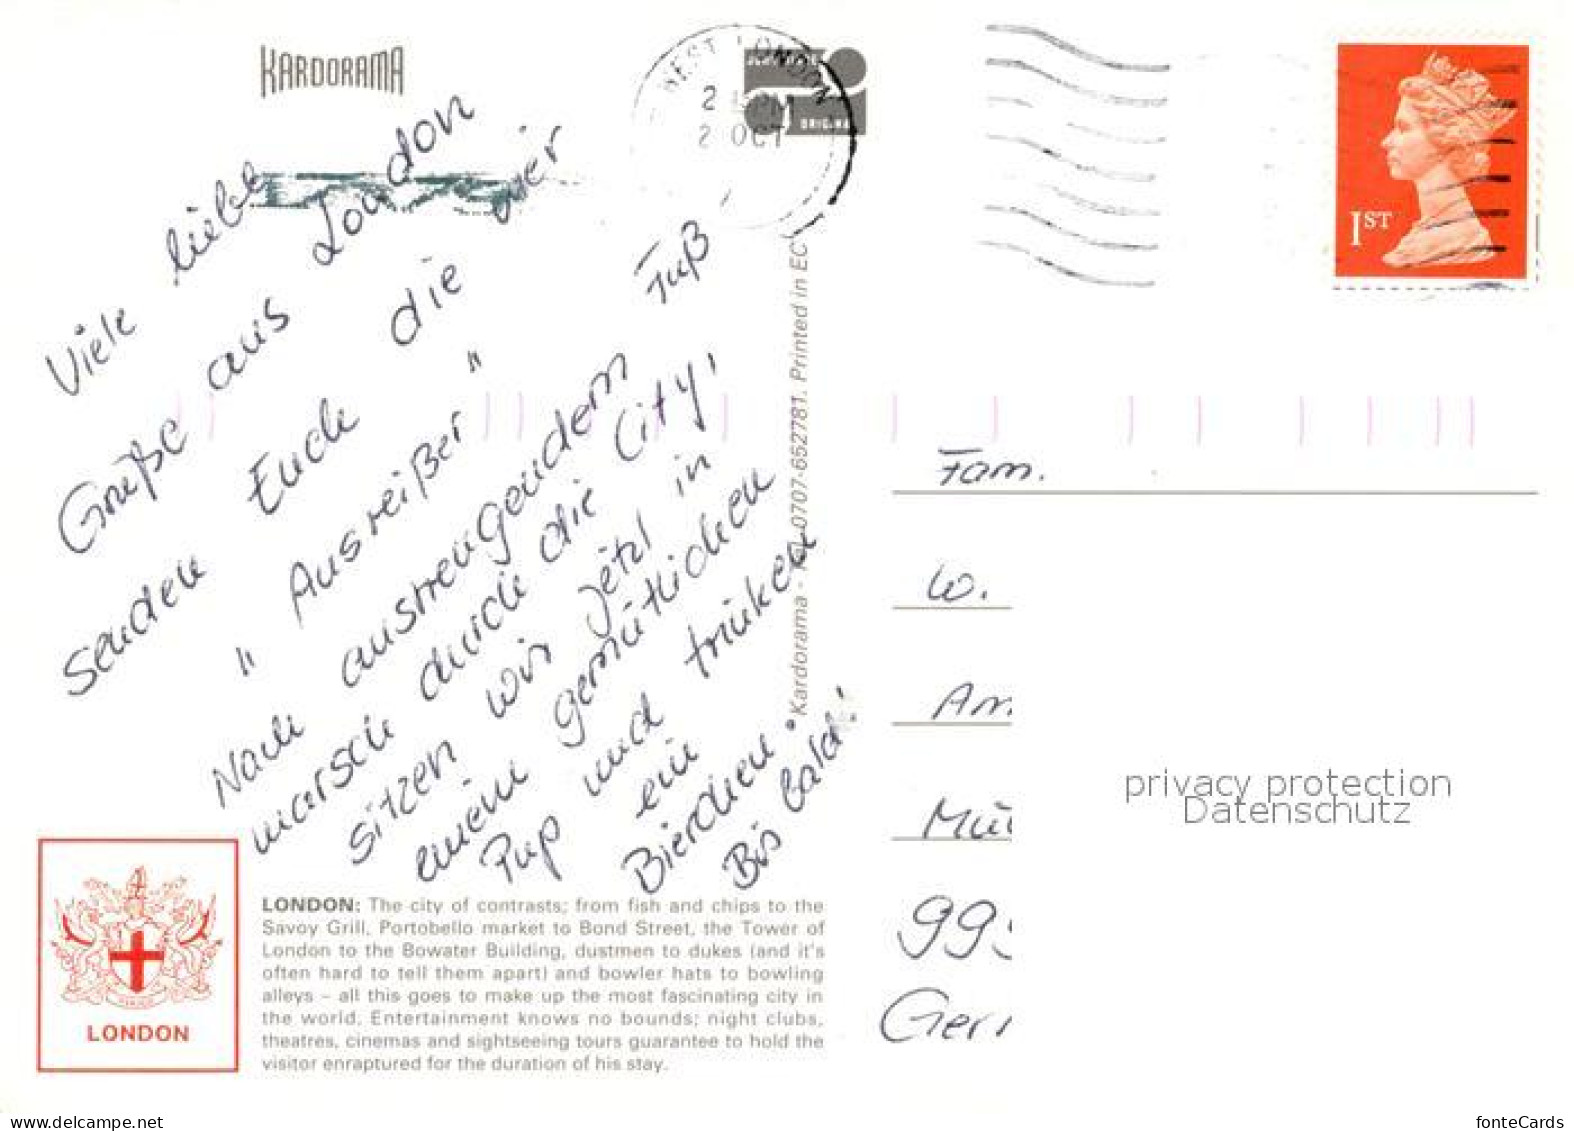 KARDORAMA
WEST LONDON
2 OCT
1ST
Viele liebe
Grüße aus London
senden Euch die vier
" Ausreißer "
Nach anstrengendem Fuß
marsch durch die City,
sitzen wir jetzt in
einem gemütlichen
Pup und trinken
ein
Bierchen.
Bis bald!
Kardorama - 0707-652781. Printed in EC
Fam.
W.
Am
Mü
99
Ger
privacy protection
Datenschutz
LONDON
LONDON: The city of contrasts; from fish and chips to the
Savoy Grill, Portobello market to Bond Street, the Tower of
London to the Bowater Building, dustmen to dukes (and it's
often hard to tell them apart) and bowler hats to bowling
alleys – all this goes to make up the most fascinating city in
the world. Entertainment knows no bounds; night clubs,
theatres, cinemas and sightseeing tours guarantee to hold the
visitor enraptured for the duration of his stay.
www.delcampe.net
fonteCards